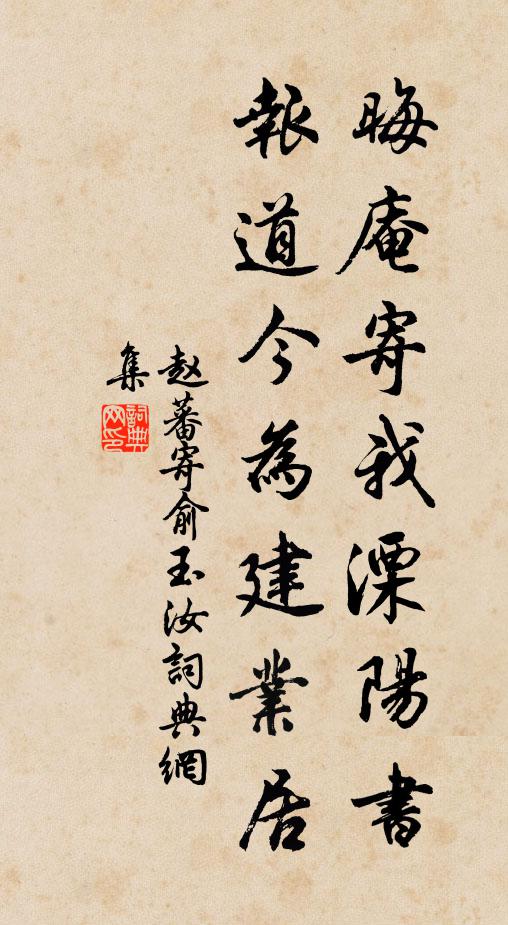 晦庵寄我溧陽書
報道今為建業居
赵蕃寄俞玉汝詞典網
集
詞典
网印